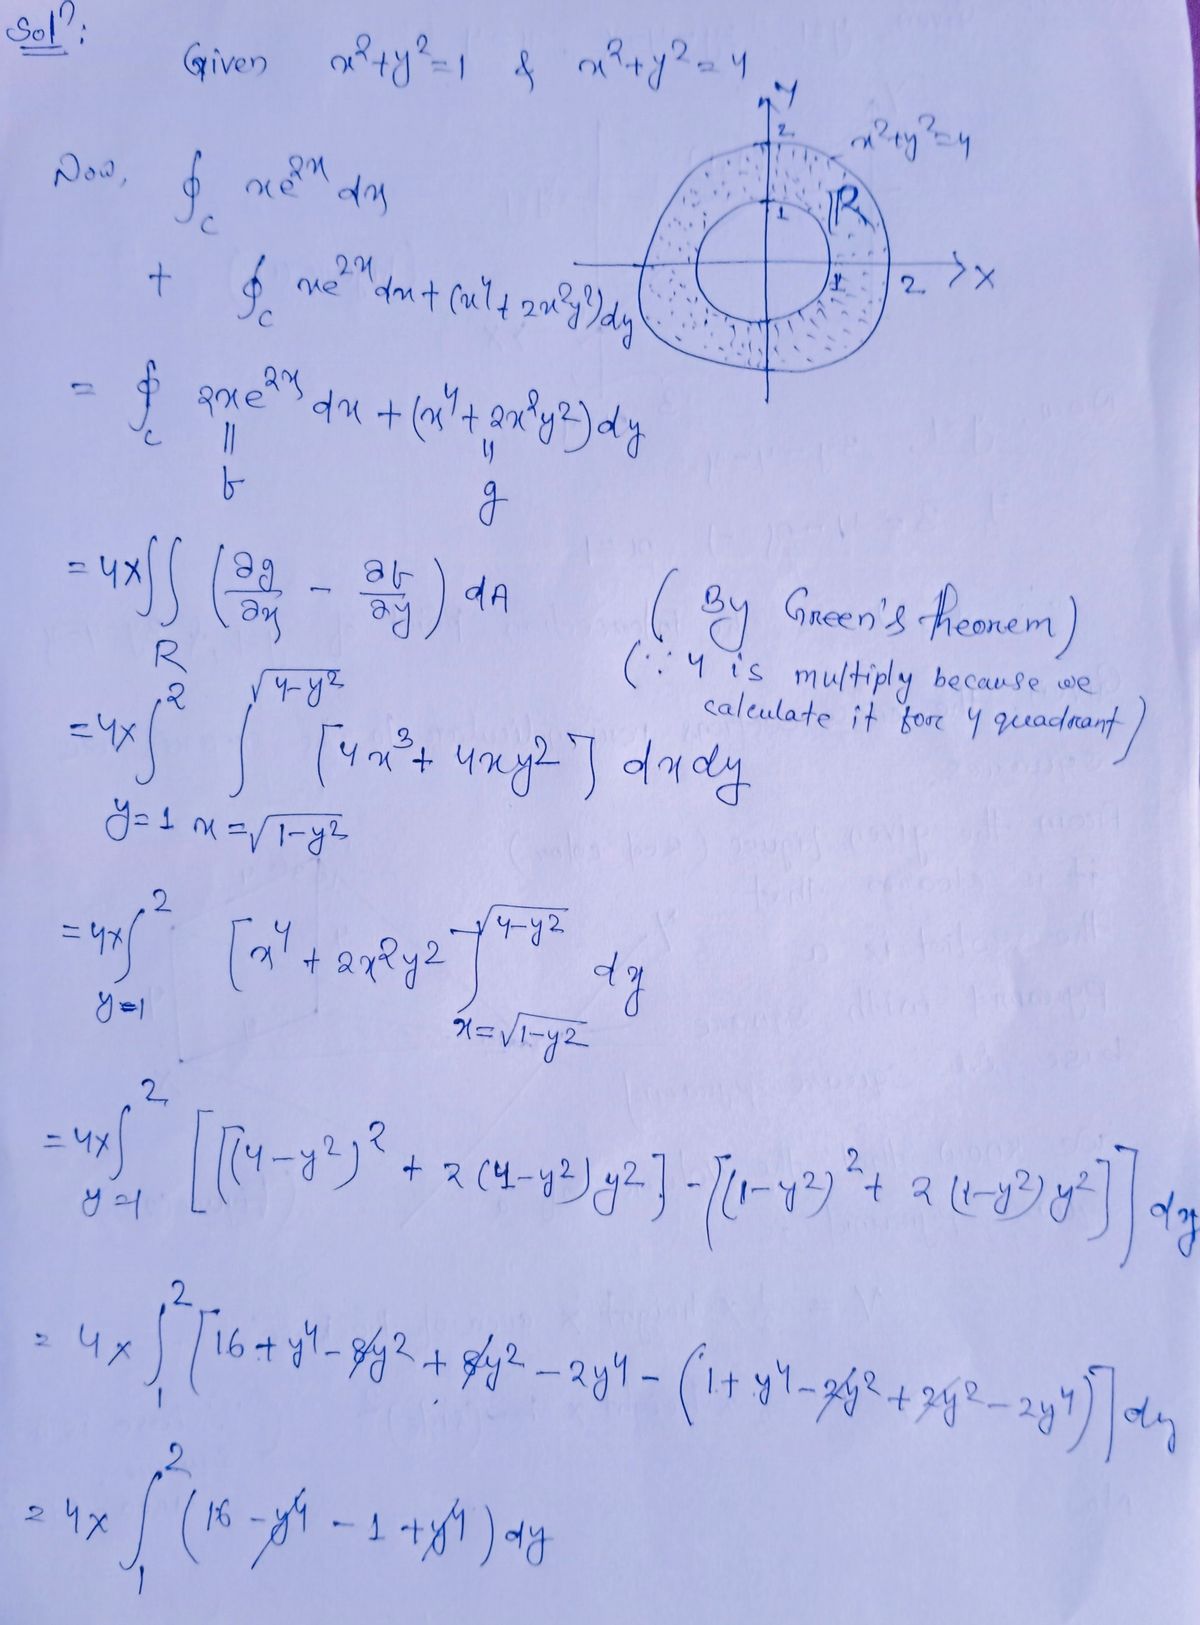 Solⁿ:
Given x²+y²=1 & x²+y²=4
Y
2
x²+y²=4
1
R
1
2
X
Now, ∮_C xe^{2x} dx
+ ∮_C xe^{2x} dx + (x⁴+2x²y²) dy
= ∮_C 2xe^{2x} dx + (x⁴+2x²y²) dy
|| ||
f g
= 4×∬_R (∂g/∂x - ∂f/∂y) dA
(By Green's theorem)
(∵ 4 is multiply because we
calculate it for 4 quadrant)
= 4×∫_{y=1}^{2} ∫_{x=√(1-y²)}^{√(4-y²)} [4x³+4xy²] dxdy
= 4×∫_{y=1}^{2} [x⁴+2x²y²]_{x=√(1-y²)}^{√(4-y²)} dy
= 4×∫_{y=1}^{2} [[(4-y²)²+2(4-y²)y²] - [(1-y²)²+2(1-y²)y²]] dy
= 4×∫_1^2 [16+y⁴-8y²+8y²-2y⁴-(1+y⁴-2y²+2y²-2y⁴)] dy
= 4×∫_1^2 (16-y⁴-1+y⁴) dy